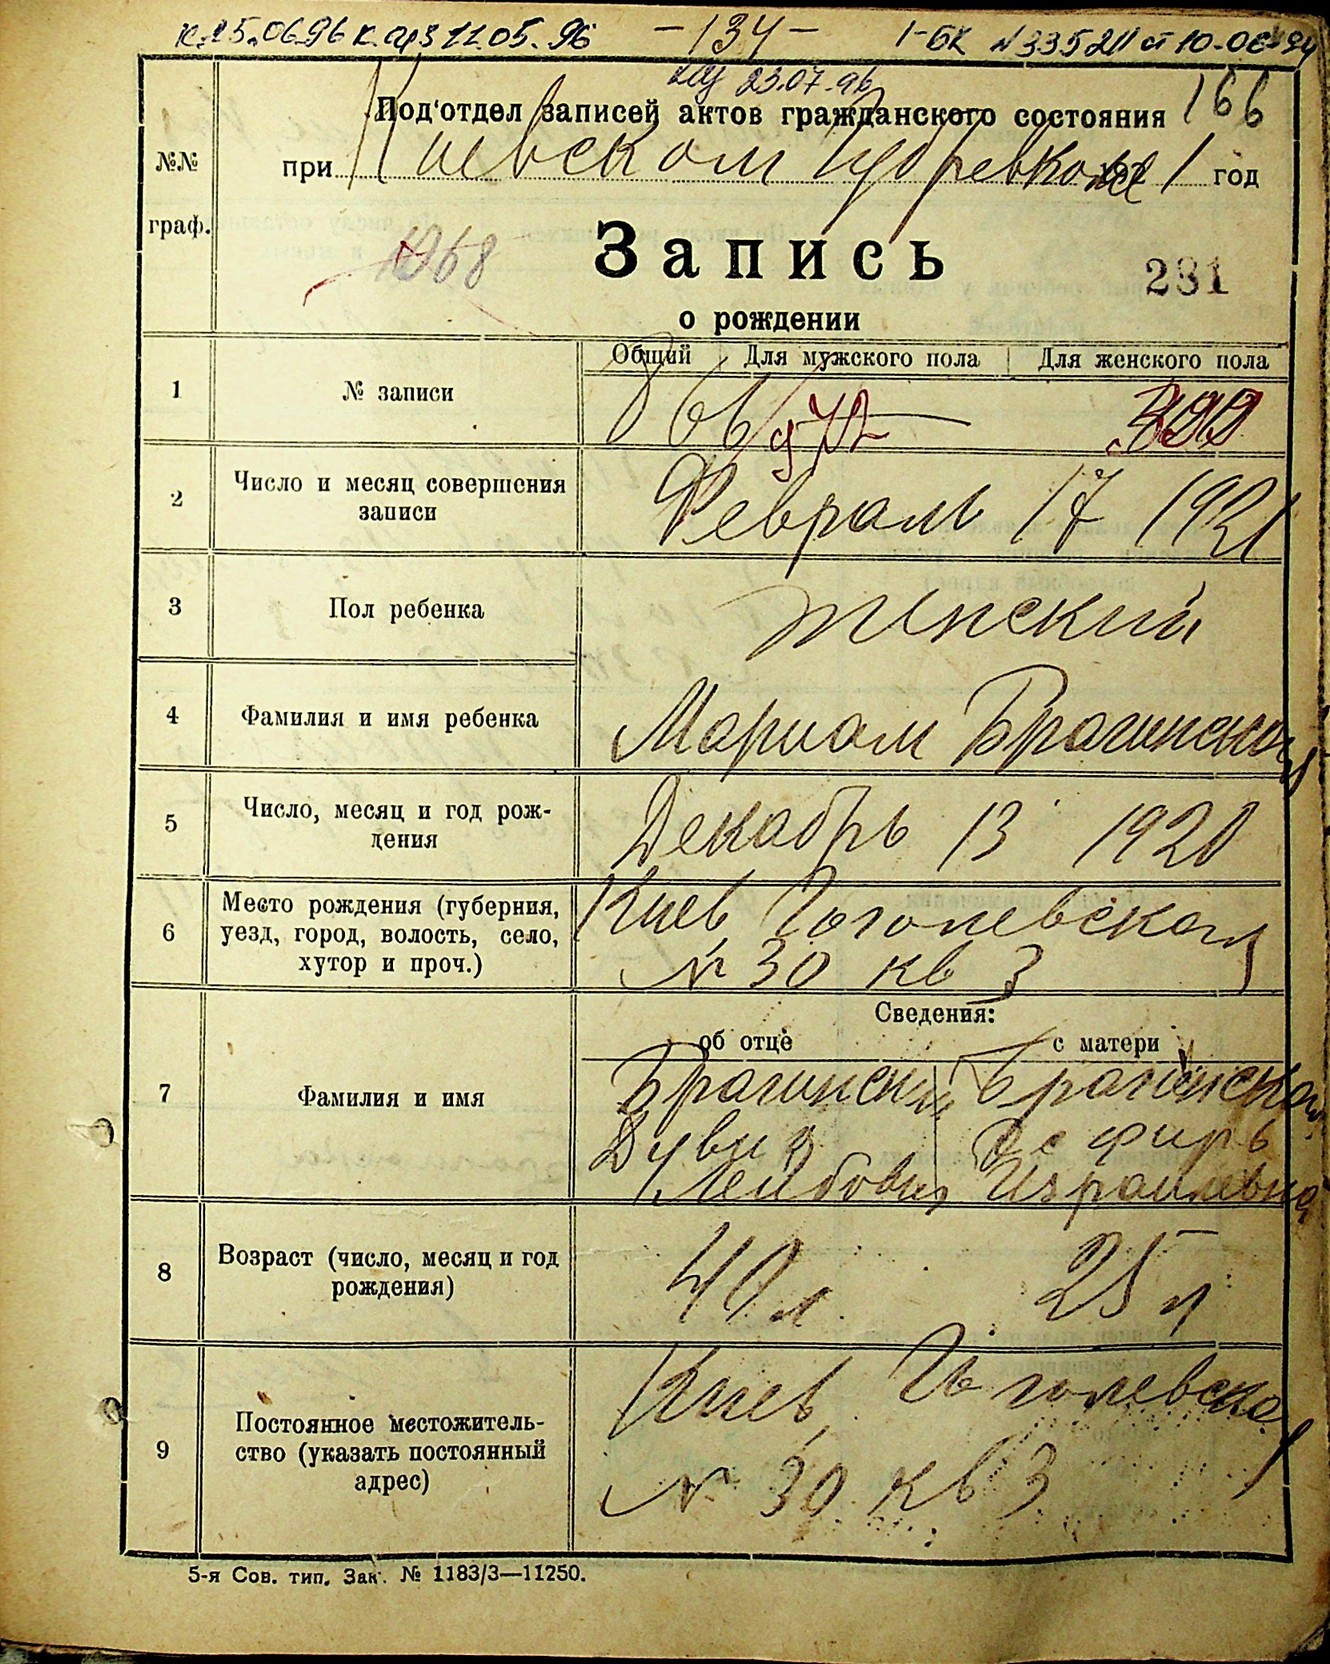 -134-
23.07.96
166
Под'отдел записей актов гражданского состояния
при Киевском Губревкоме 1 год
№№
граф.
1068
Запись
281
о рождении
Общий Для мужского пола Для женского пола
1 № записи 866
2 Число и месяц совершения
записи
Февраль 17 1921
3 Пол ребенка женский
4 Фамилия и имя ребенка Мариам Брагинская
5 Число, месяц и год рож-
дения
Декабрь 13 1920
6 Место рождения (губерния,
уезд, город, волость, село,
хутор и проч.)
Киев Гоголевская
№ 30 кв 3
Сведения:
об отце с матери
7 Фамилия и имя
Брагинский Брагинская
Лейбович Израилевна
8 Возраст (число, месяц и год
рождения)
40 л. 25 л
9 Постоянное местожитель-
ство (указать постоянный
адрес)
Киев Гоголевская
№ 30 кв 3
5-я Сов. тип. Зак. № 1183/3—11250.